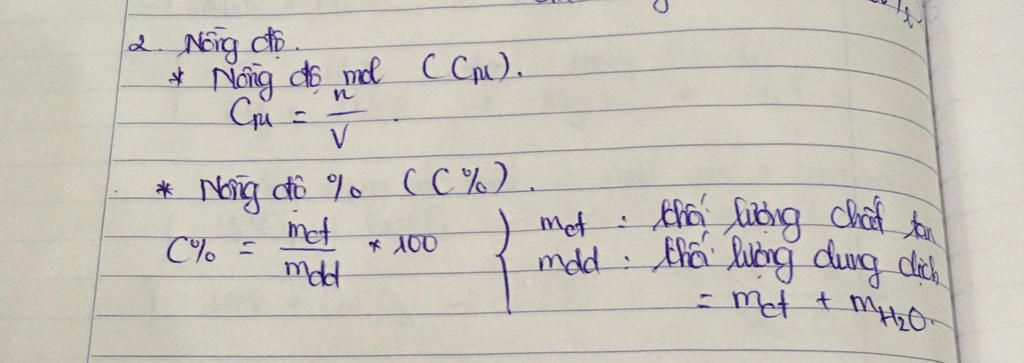 2. Nồng độ.
* Nồng độ mol (CM).
CM = n / V.
* Nồng độ % (C%).
C% = mct / mdd * 100 } mct : khối lượng chất tan
mdd : khối lượng dung dịch
= mct + mH2O.